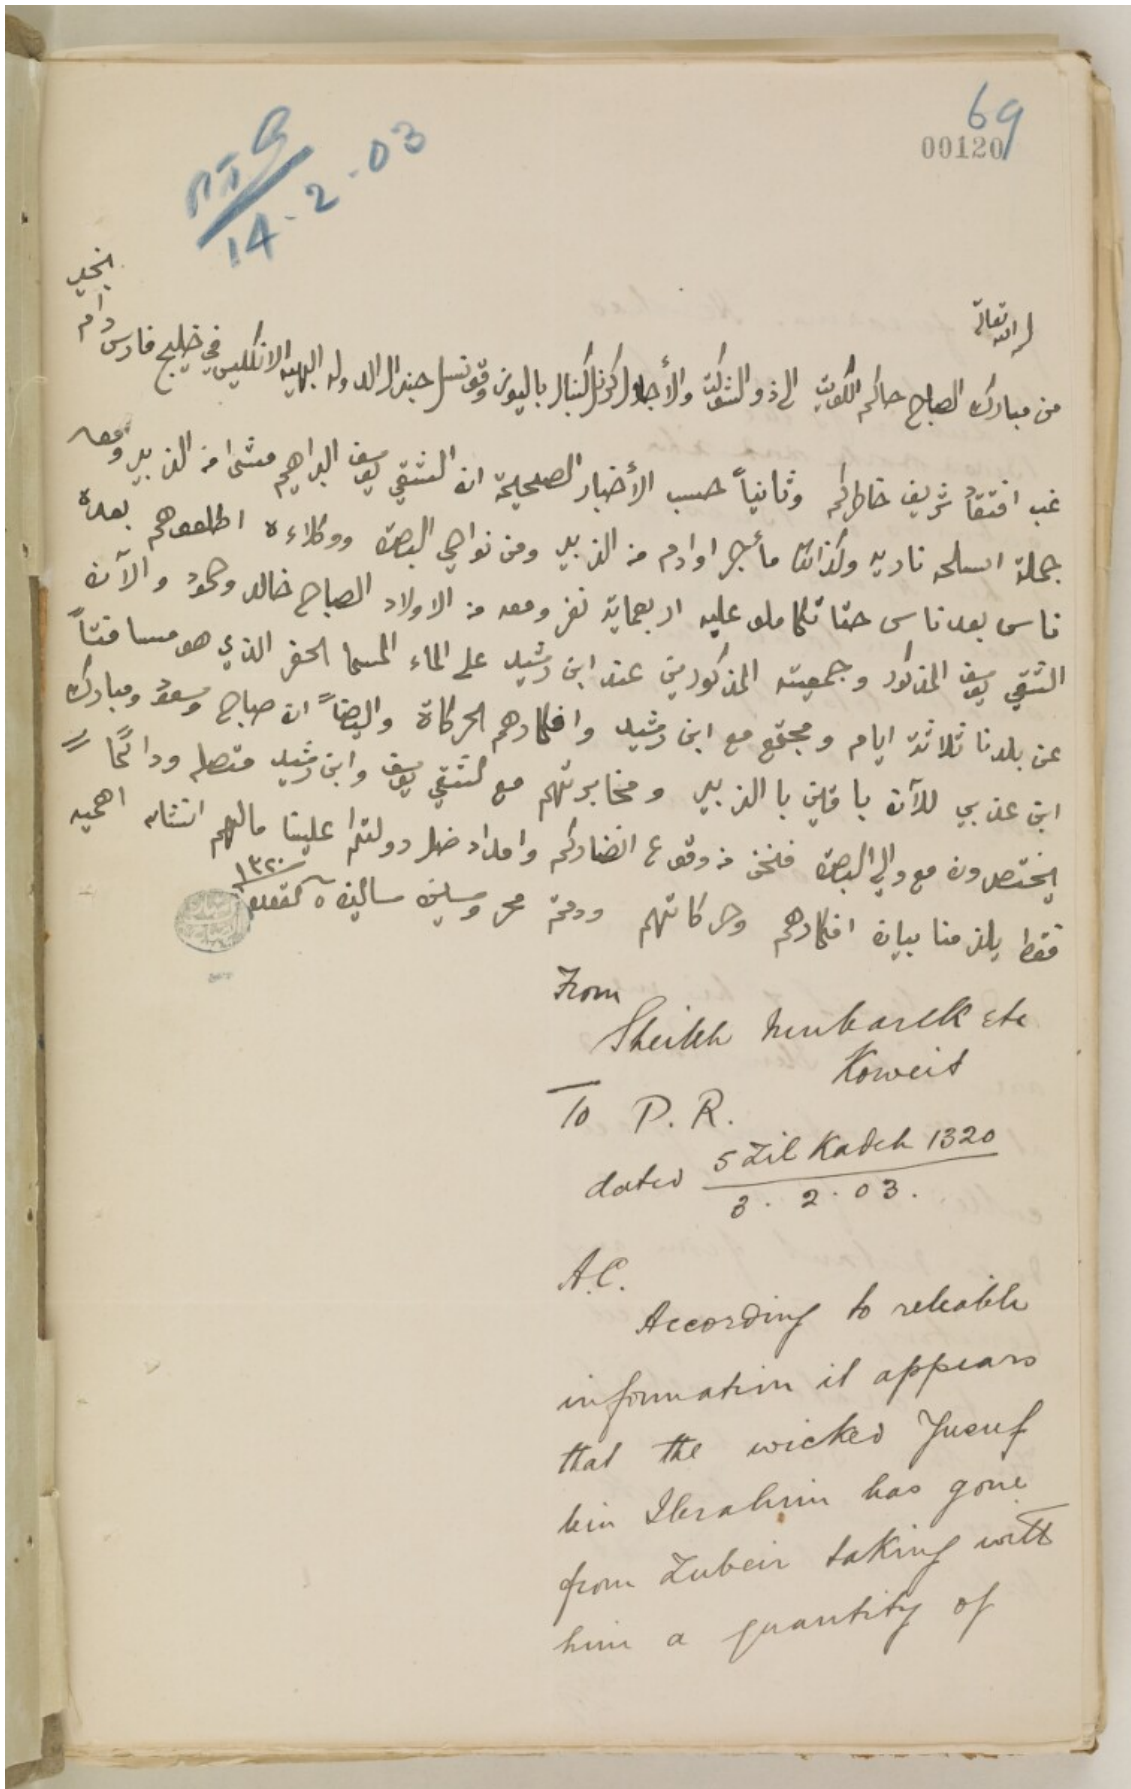 69
00120
14-2-03
بخير
دام
له الله تعالى
من مبارك الصباح حاكم الكويت الى ذو الشوكت والأجلال كرنل كنبال باليوز وقونسل جنرال الدوله البهيه الانكليس في خليج فارس
غب افتقاد شريف خاطركم وثانياً حسب الأخبار الصحيحة ان الشقي يوسف البراهيم مشى من الزبير ومعه
جملة اسلحه ناريه وكذالك مأجر اوادم من الزبير ومن نواحي البصرة ووكلاءه اطلعوهم بعده
ناس بعد ناس حتا تكاملو عليه اربعماية نفر ومعه من الاولاد الصباح خالد وحمود والآن
الشقي يوسف المذكور وجمعيته المذكورين عند ابن رشيد على الماء المسما الحفر الذي هو مسافتاً
عن بلدنا ثلاثة ايام ومجتمع مع ابن رشيد وافكارهم الحركاة وايضاً ان صباح وسعود ومبارك
ابن عذبي للآن باقين بالزبير ومخابرتهم مع الشقي يوسف وابن رشيد متصله ودائماً
يختصرون مع والي البصرة فنحن من وقوع انضاركم وامداد ضل دولتكم علينا مالهم انشاله اهميه
فقط يلزمنا بيان افكارهم وحركاتهم ودمتم محروسين سالين ٥ القعده ١٣٢٠
From
Sheikh Mubarek etc
Koweit
To P. R.
dated 5 Zil Kadeh 1320
3. 2. 03.
A.C.
According to reliable
information it appears
that the wicked Yusuf
bin Ibrahim has gone
from Zubeir taking with
him a quantity of